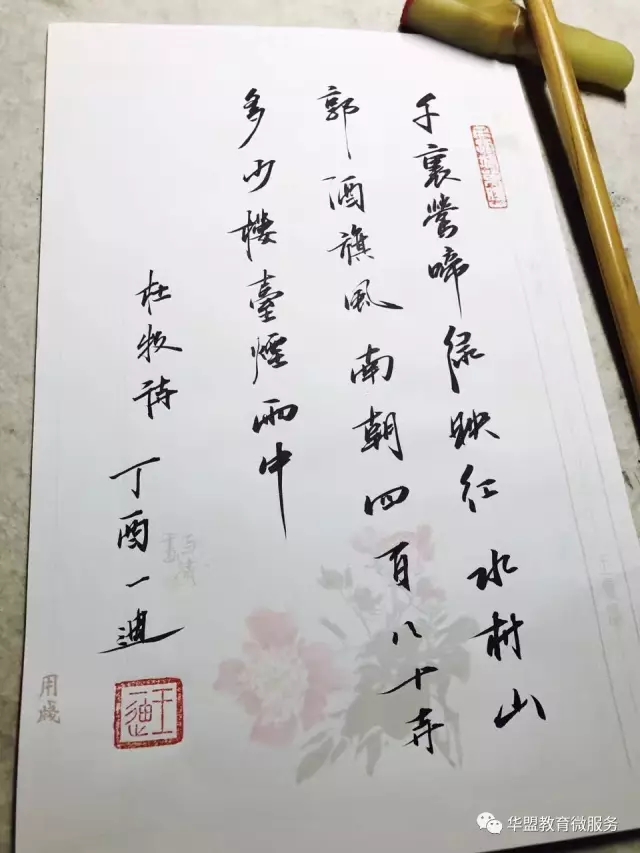 千裏鶯啼綠映紅水村山
郭酒旗風南朝四百八十寺
多少樓臺煙雨中
杜牧詩 丁酉一迪
王一迪
用箋
华盟教育微服务